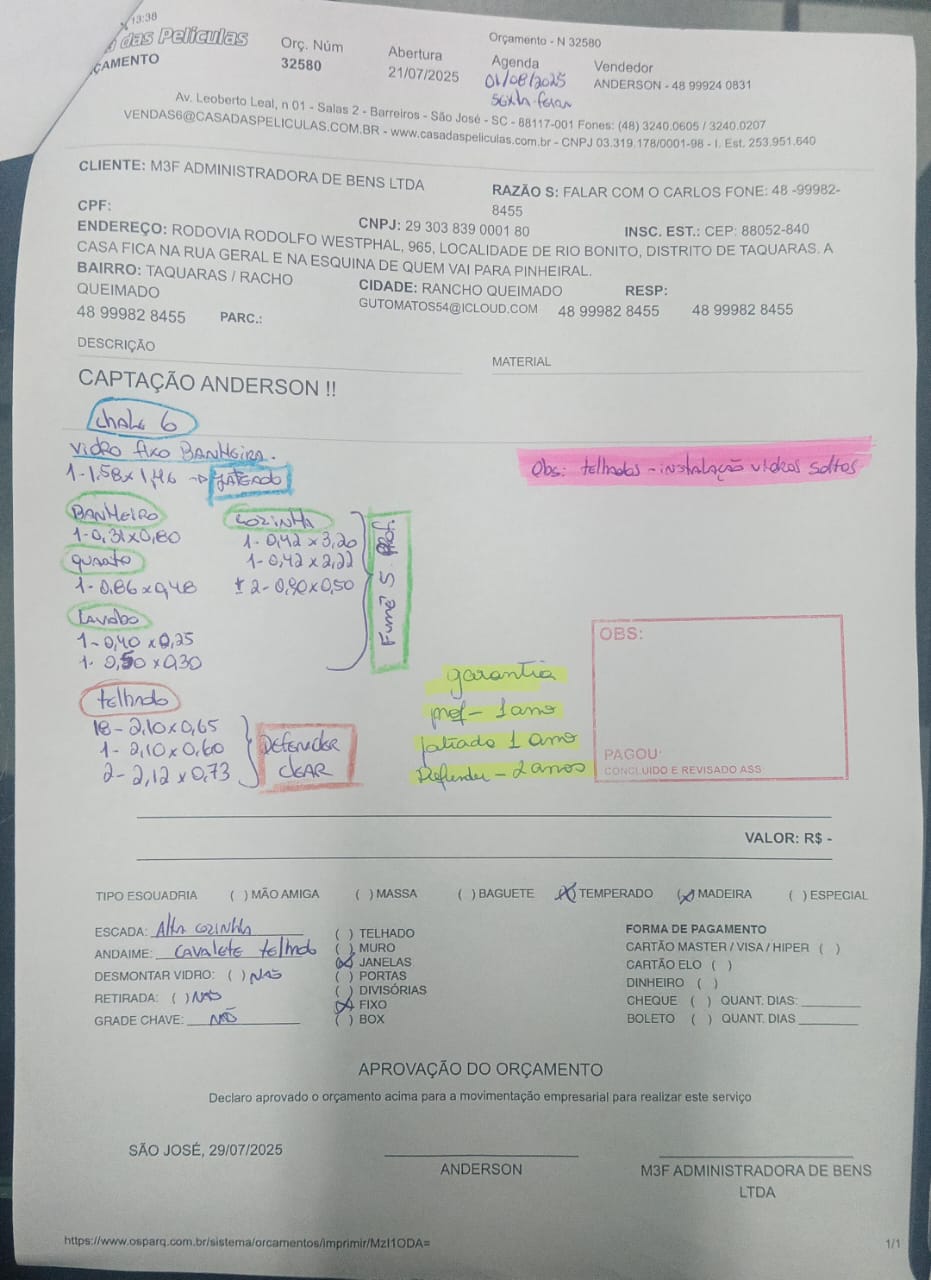 13:38
das Películas
Orç. Núm
32580
Abertura
21/07/2025
Orçamento - N 32580
Agenda
01/08/2025
sexta-feira
Vendedor
ANDERSON - 48 99924 0831
Av. Leoberto Leal, n 01 - Salas 2 - Barreiros - São José - SC - 88117-001 Fones: (48) 3240.0605 / 3240.0207
VENDAS6@CASADASPELICULAS.COM.BR - www.casadaspeliculas.com.br - CNPJ 03.319.178/0001-98 - I. Est. 253.951.640
CLIENTE: M3F ADMINISTRADORA DE BENS LTDA
RAZÃO S: FALAR COM O CARLOS FONE: 48 -99982-
8455
CPF:
CNPJ: 29 303 839 0001 80
INSC. EST.: CEP: 88052-840
ENDEREÇO: RODOVIA RODOLFO WESTPHAL, 965, LOCALIDADE DE RIO BONITO, DISTRITO DE TAQUARAS. A
CASA FICA NA RUA GERAL E NA ESQUINA DE QUEM VAI PARA PINHEIRAL.
BAIRRO: TAQUARAS / RACHO
QUEIMADO
CIDADE: RANCHO QUEIMADO
RESP:
48 99982 8455
PARC.:
GUTOMATOS54@ICLOUD.COM
48 99982 8455
48 99982 8455
DESCRIÇÃO
MATERIAL
CAPTAÇÃO ANDERSON !!
chale 6
Vidro fixo BANHEIRA.
1-1,58x1,46 → JATEADO
Obs: telhados - instalação vidros soltos
BANHEIRO
1-0,31x0,80
quarto
1-0,86x0,48
Lavabo
1-0,40x0,25
1-0,50x0,30
COZINHA
1-0,42x3,20
1-0,42x2,22
± 2-0,90x0,50
Fumê 5 Prof.
telhado
18-2,10x0,65
1-2,10x0,60
2-2,12x0,73
DEFENDER
CLEAR
garantia
prof - 1 ano
jateado 1 ano
Defender - 2 anos
OBS:
PAGOU:
CONCLUIDO E REVISADO ASS
VALOR: R$ -
TIPO ESQUADRIA ( ) MÃO AMIGA ( ) MASSA ( ) BAGUETE (X) TEMPERADO (X) MADEIRA ( ) ESPECIAL
ESCADA: Alta cozinha
ANDAIME: cavalete telhado
DESMONTAR VIDRO: ( ) NÃO
RETIRADA: ( ) NÃO
GRADE CHAVE: NÃO
( ) TELHADO
( ) MURO
(X) JANELAS
( ) PORTAS
( ) DIVISÓRIAS
(X) FIXO
( ) BOX
FORMA DE PAGAMENTO
CARTÃO MASTER / VISA / HIPER ( )
CARTÃO ELO ( )
DINHEIRO ( )
CHEQUE ( ) QUANT. DIAS:
BOLETO ( ) QUANT. DIAS
APROVAÇÃO DO ORÇAMENTO
Declaro aprovado o orçamento acima para a movimentação empresarial para realizar este serviço
SÃO JOSÉ, 29/07/2025
ANDERSON
M3F ADMINISTRADORA DE BENS
LTDA
https://www.osparq.com.br/sistema/orcamentos/imprimir/MzI1ODA=
1/1